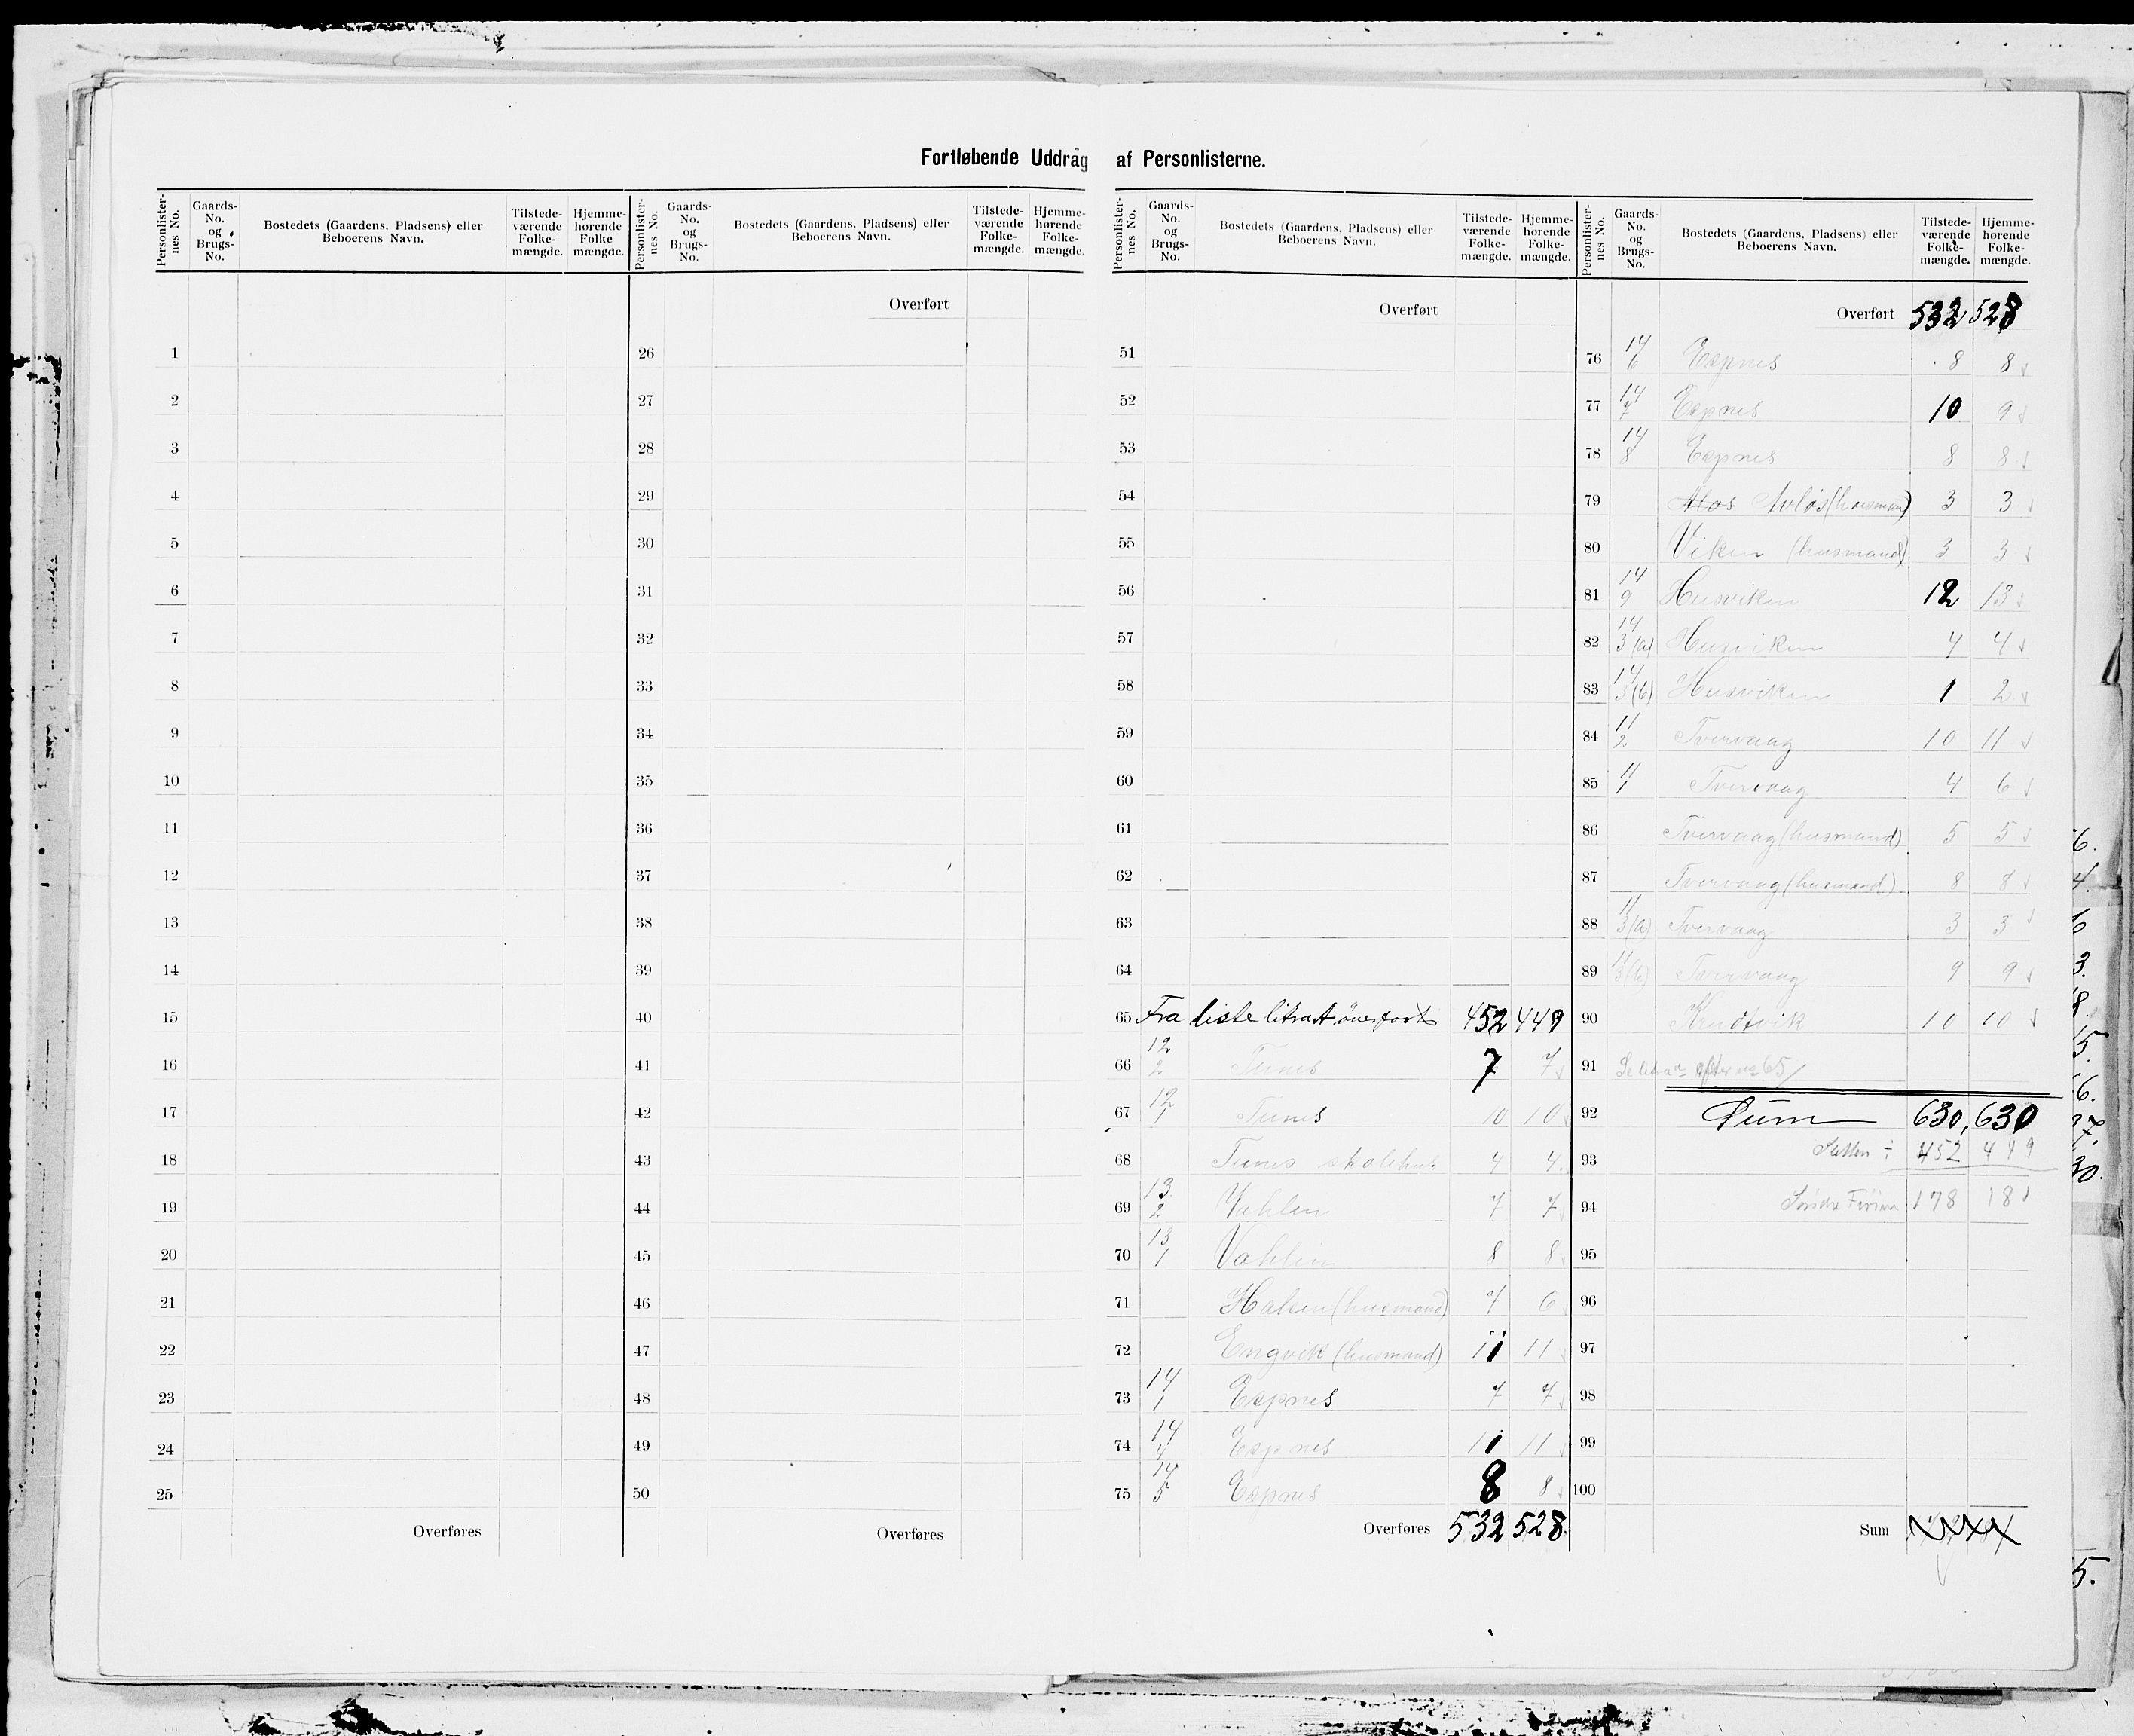 Fortløbende Uddrag af Personlisterne.
Personlister-nes No. Gaards-No. og Brugs-No. Bostedets (Gaardens, Pladsens) eller Beboerens Navn. Tilstede-værende Folke-mængde. Hjemme-hørende Folke mængde.
1
2
3
4
5
6
7
8
9
10
11
12
13
14
15
16
17
18
19
20
21
22
23
24
25
Overføres
Personlister-nes No. Gaards-No. og Brugs-No. Bostedets (Gaardens, Pladsens) eller Beboerens Navn. Tilstede-værende Folke-mængde. Hjemme-hørende Folke-mængde.
Overført
26
27
28
29
30
31
32
33
34
35
36
37
38
39
40
41
42
43
44
45
46
47
48
49
50
Overføres
Personlister-nes No. Gaards-No. og Brugs-No. Bostedets (Gaardens, Pladsens) eller Beboerens Navn. Tilstede-værende Folke-mængde. Hjemme-hørende Folke-mængde.
Overført
51
52
53
54
55
56
57
58
59
60
61
62
63
64
65 Fra liste litra A overført 452 449
66 12 2 Tunes 7 7
67 12 1 Tunes 10 10
68 Tunes skolehus 4 4
69 13 2 Vahlen 7 7
70 13 1 Vahlen 8 8
71 Halsen (husmand) 7 6
72 Engvik (husmand) 11 11
73 14 1 Espnes 7 7
74 14 4 Espnes 11 11
75 14 5 Espnes 8 8
Overføres 532 528
Personlister-nes No. Gaards-No. og Brugs-No. Bostedets (Gaardens, Pladsens) eller Beboerens Navn. Tilstede-værende Folke-mængde. Hjemme-hørende Folke-mængde.
Overført 532 528
76 14 6 Espnes 8 8
77 14 7 Espnes 10 9
78 14 8 Espnes 8 8
79 Avløs (husmand) 3 3
80 Viken (husmand) 3 3
81 14 9 Husviken 12 13
82 14 3(a) Husviken 4 4
83 14 3(b) Husviken 1 2
84 11 2 Tvervaag 10 11
85 11 1 Tvervaag 4 6
86 Tvervaag (husmand) 5 5
87 Tvervaag (husmand) 8 8
88 11 3(a) Tvervaag 3 3
89 11 3(b) Tvervaag 9 9
90 Knutvik 10 10
91 Se litra a efter no 65
92 Sum 630, 630
93 ÷ 452 449
94 Søndre 178 181
95
96
97
98
99
100
Sum